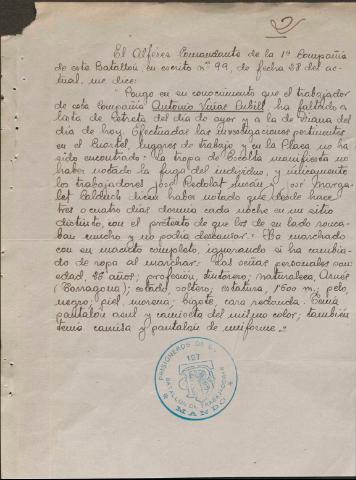 2
El Alférez Comandante de la 1ª Compañía
de este Batallón, en escrito nº 99, de fecha 28 del ac-
tual, me dice:
"Pongo en su conocimiento que el trabajador
de esta Compañía Antonio Viñas Cubill, ha faltado a
lista de Retreta del día de ayer y a la de Diana del
día de hoy. Efectuadas las investigaciones pertinentes
en el Cuartel, lugares de trabajo y en la Plaza, no ha
sido encontrado. La tropa de Escolta manifiesta no
haber notado la fuga del individuo, y únicamente
los trabajadores José Redolat y José Marga-
let dicen haber notado que desde hace
tres o cuatro días dormía cada noche en un sitio
distinto, con el pretexto de que los de su lado ronca-
ban mucho y no podía descansar. Ha marchado
con su macuto completo, ignorando si ha cambia-
do de ropa al marchar. Las señas personales son:
edad, 26 años; profesión, tintorero; naturaleza,
(Tarragona); estado, soltero; estatura, 1'600 m.; pelo,
negro; piel, morena; bigote, cara redonda. Tenía
pantalón azul y camiseta del mismo color; también
tenía camisa y pantalón de uniforme."
PRISIONEROS DE G.
127
BATALLON DE TRABAJADORES
* MANDO *